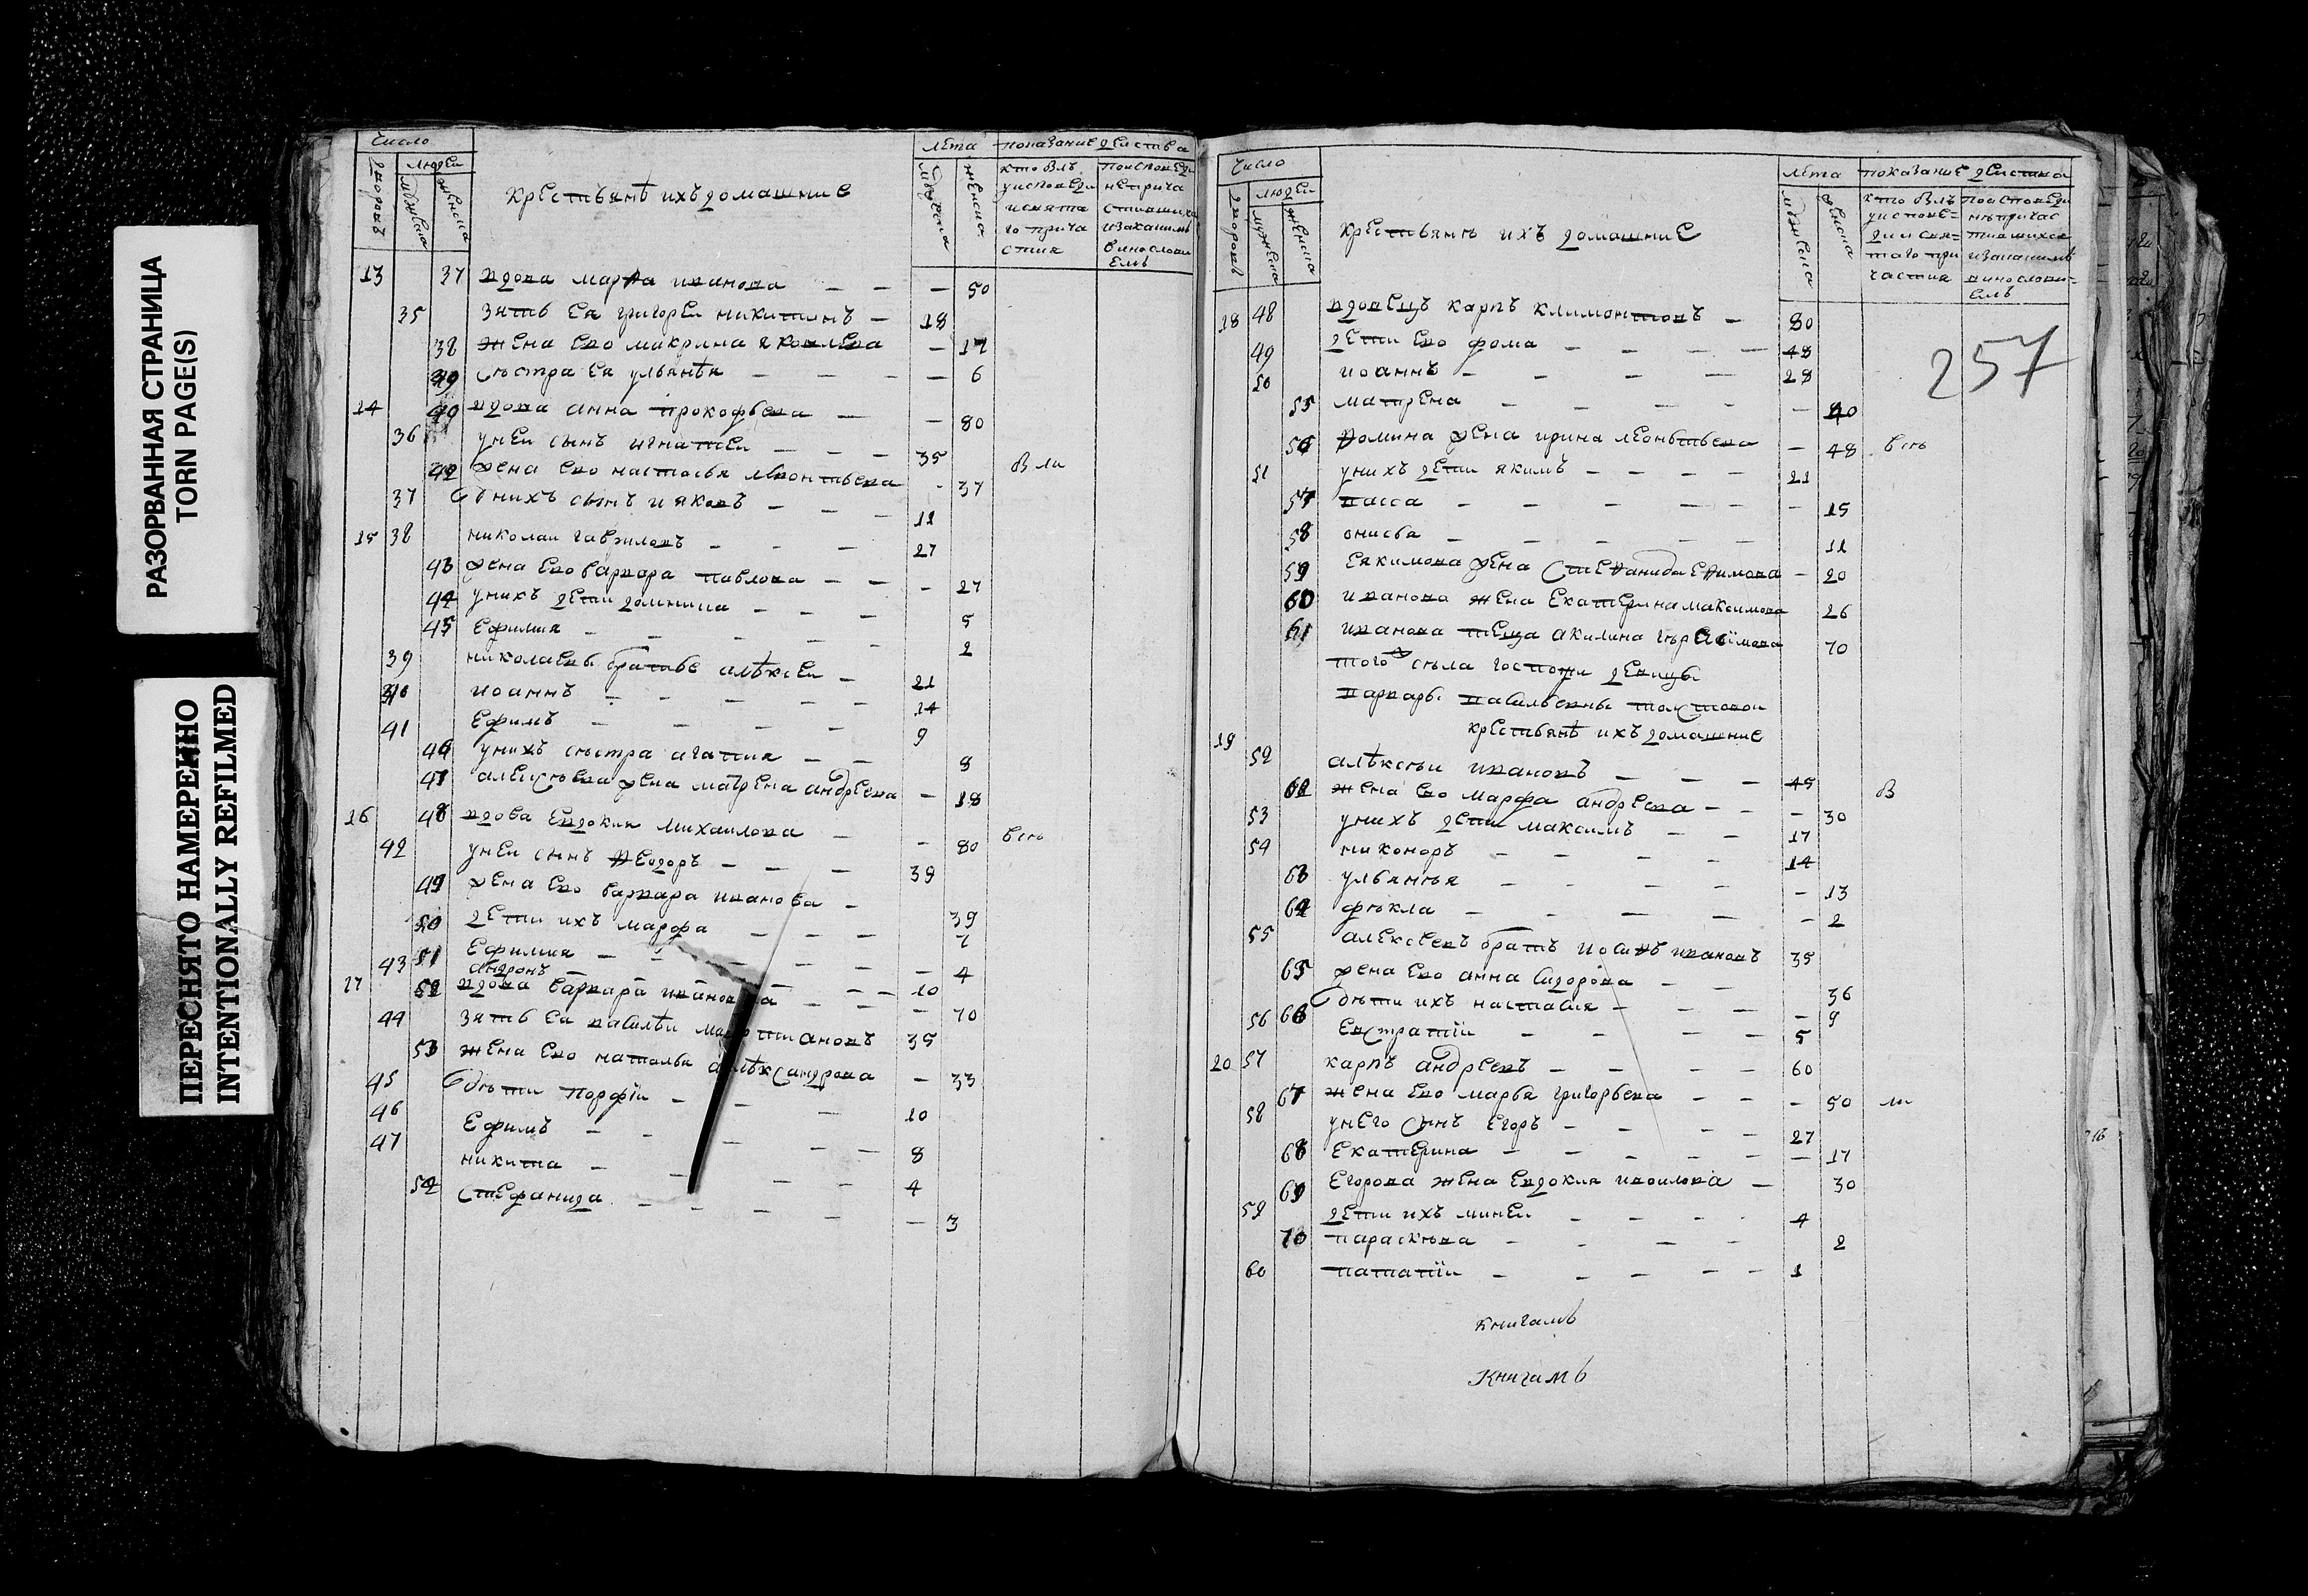 РАЗОРВАННАЯ СТРАНИЦА
TORN PAGE(S)
ПЕРЕСНЯТО НАМЕРЕННО
INTENTIONALLY REFILMED
Число
лѣта показание действа
дворовъ
людеи
мужеска
женска
крестьянѣ ихъ домашние
мужеска
женска
кто былъ у исповеди и святаго причастия
по исповеди не причастившихся и за какимъ винословиемъ
13 37 вдова марфа иванова — — — 50
35 зять ея григореи никитинъ — 18
38 жена ево макрина яковлева — 17
39 сѣстра ея ульянѣя — — — — 6
14 40 вдова анна прокофьева — — 80
36 у неи сынъ игнатеи — — — 35
42 жена ево настасья леонтьева - 37
37 У нихъ сынъ ияковъ — — — 11
15 38 николаи гавриловъ — — — 27
43 жена ево варвара павлова — — — 27
44 у нихъ дети домника — — — 5
45 Ефимия — — — — — 2
39 николаевы братье алѣксеи — 21
40 иоаннъ — — — — — 14
41 Ефимъ — — — — — 9
46 у нихъ сѣстра агапия — — 8
47 алексѣева жена матрена андреева — 18
16 48 вдова Евдокия михаилова — — 80
42 у неи сынъ федоръ — — — 39
49 жена ево варвара иванова — 39
50 дети ихъ марфа — — — 7
51 Ефимия — — — — — — 4
43 андронъ — — — — 10
17 52 вдова варвара иванова — — — 70
44 зять еи василѣи мартиановъ 35
53 жена ево наталья алѣксандрова — 33
45 дѣти порфiи — — — 10
46 Ефимъ — — — — — 8
47 никита — — — — 4
54 Стефанида — — — — — — 3
Число
лѣта показание действа
дворовъ
людеи
мужеска
женска
крестьянѣ ихъ домашние
мужеска
женска
кто былъ у исповеди и святаго причастия
по исповеди не причастившихся и за какимъ винословиемъ
257
18 48 вдовецъ карпъ климонтовъ — 80
49 дети ево фома — — — — 48
50 иоаннъ — — — — 28
55 матрена — — — — — 40
56 фомина жена ирина леонтьева — 48
51 у нихъ дети якимъ — — — — 21
57 васса — — — — — — 15
58 онисья — — — — — 11
59 Еякимова жена Стефанида Ефимова — 20
60 иванова жена Екатерина максимова 26
61 иванова теща акилина герасiмова 70
того сѣла госпожи девицы
варвары васильевны толстовои
крестьянѣ ихъ домашние
19
52 алѣксѣи ивановъ — — — 45
62 жена ево марфа андреева — — — 30
53 у нихъ дети максимъ — — 17
54 никоноръ — — — — 14
63 ульянѣя — — — — — 13
64 фѣкла — — — — — 2
55 алексеевъ братъ иоаннъ ивановъ 35
65 жена ево анна сидорова — — 36
66 дѣти ихъ настасия — — — — 9
56 Евстратiи — — — — 5
20 57 карпъ андреевъ — — — — 60
67 жена ево марья григорьева — — — 50
58 у него сынъ Егоръ — — — — 27
68 Екатерина — — — — — — 17
69 Егорова жена Евдокия изоилова — 30
59 дети ихъ минеи — — — - 4
70 параскѣва — - — — 2
60 патапiи — — — — — 1
Книгамъ
Книгамъ